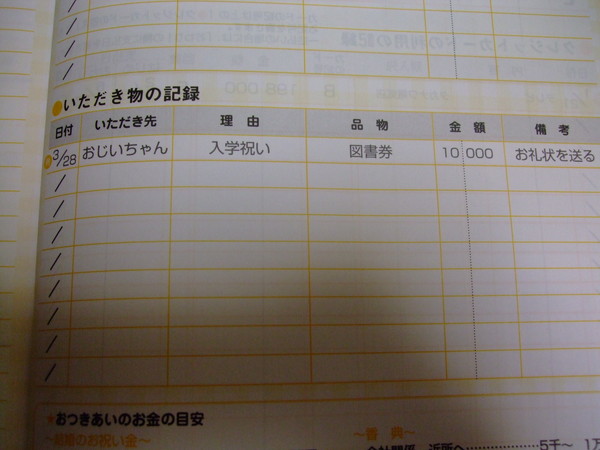 ●いただき物の記録
日付 いただき先 理由 品物 金額 備考
3/28 おじいちゃん 入学祝い 図書券 10 000 お礼状を送る
/
/
/
/
/
/
/
/
★おつきあいのお金の目安
〜結婚のお祝い金〜 〜香典〜
会社関係、近所へ……………5千〜 1万